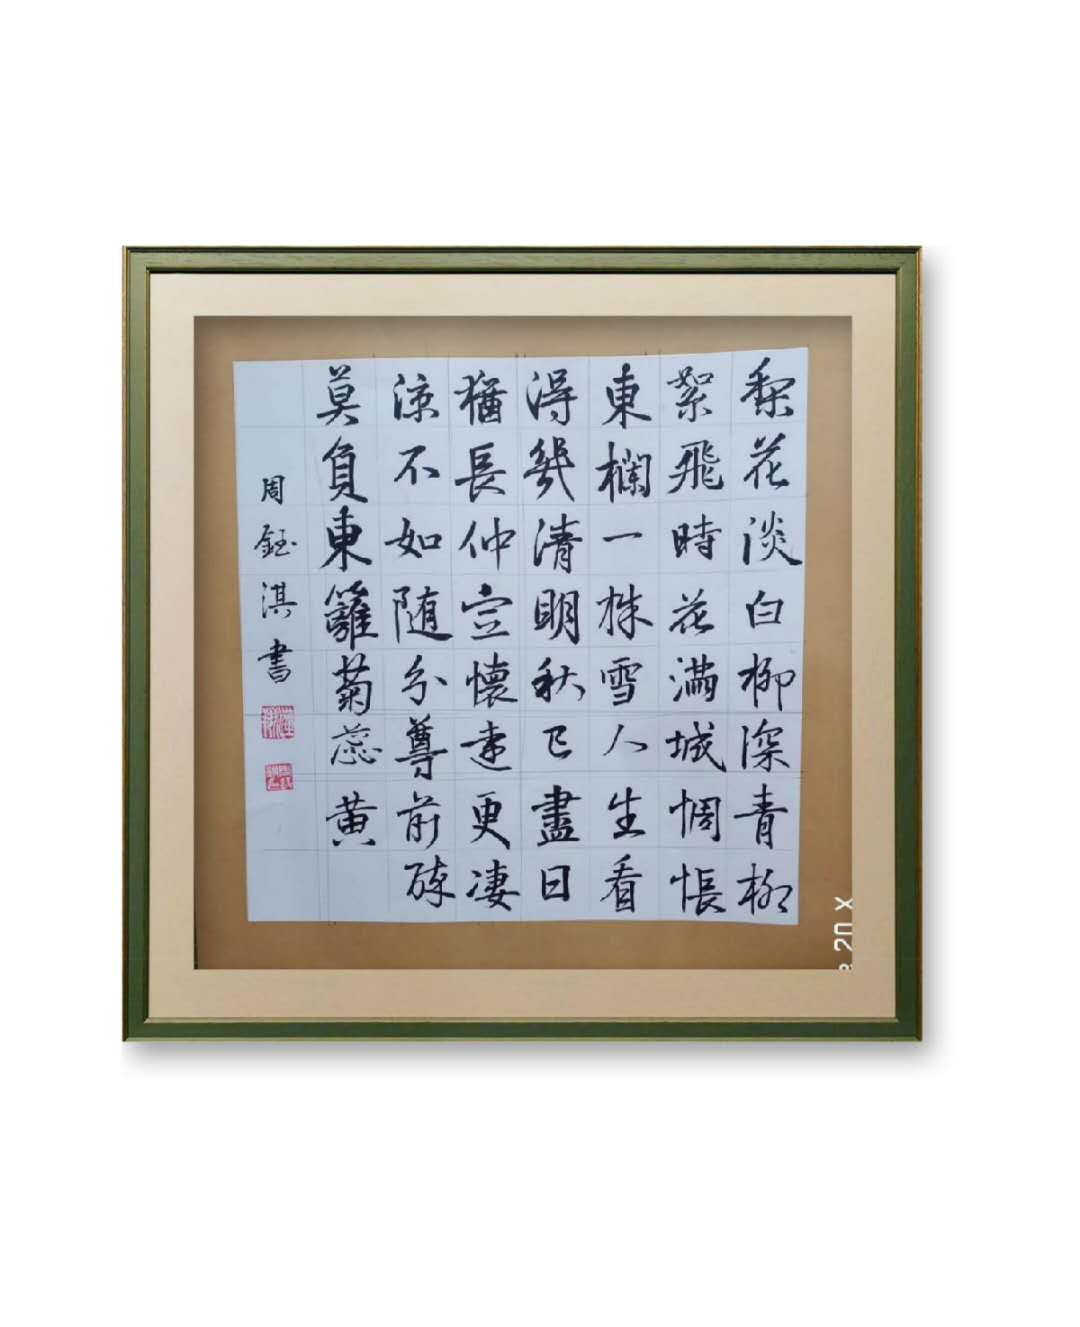 梨花淡白柳深青柳
絮飛時花滿城惆悵
東欄一株雪人生看
得幾清明秋已盡日
猶長仲宣懷遠更凄
涼不如随分尊前醉
莫負東籬菊蕊黃
周鈺淇書
20 X